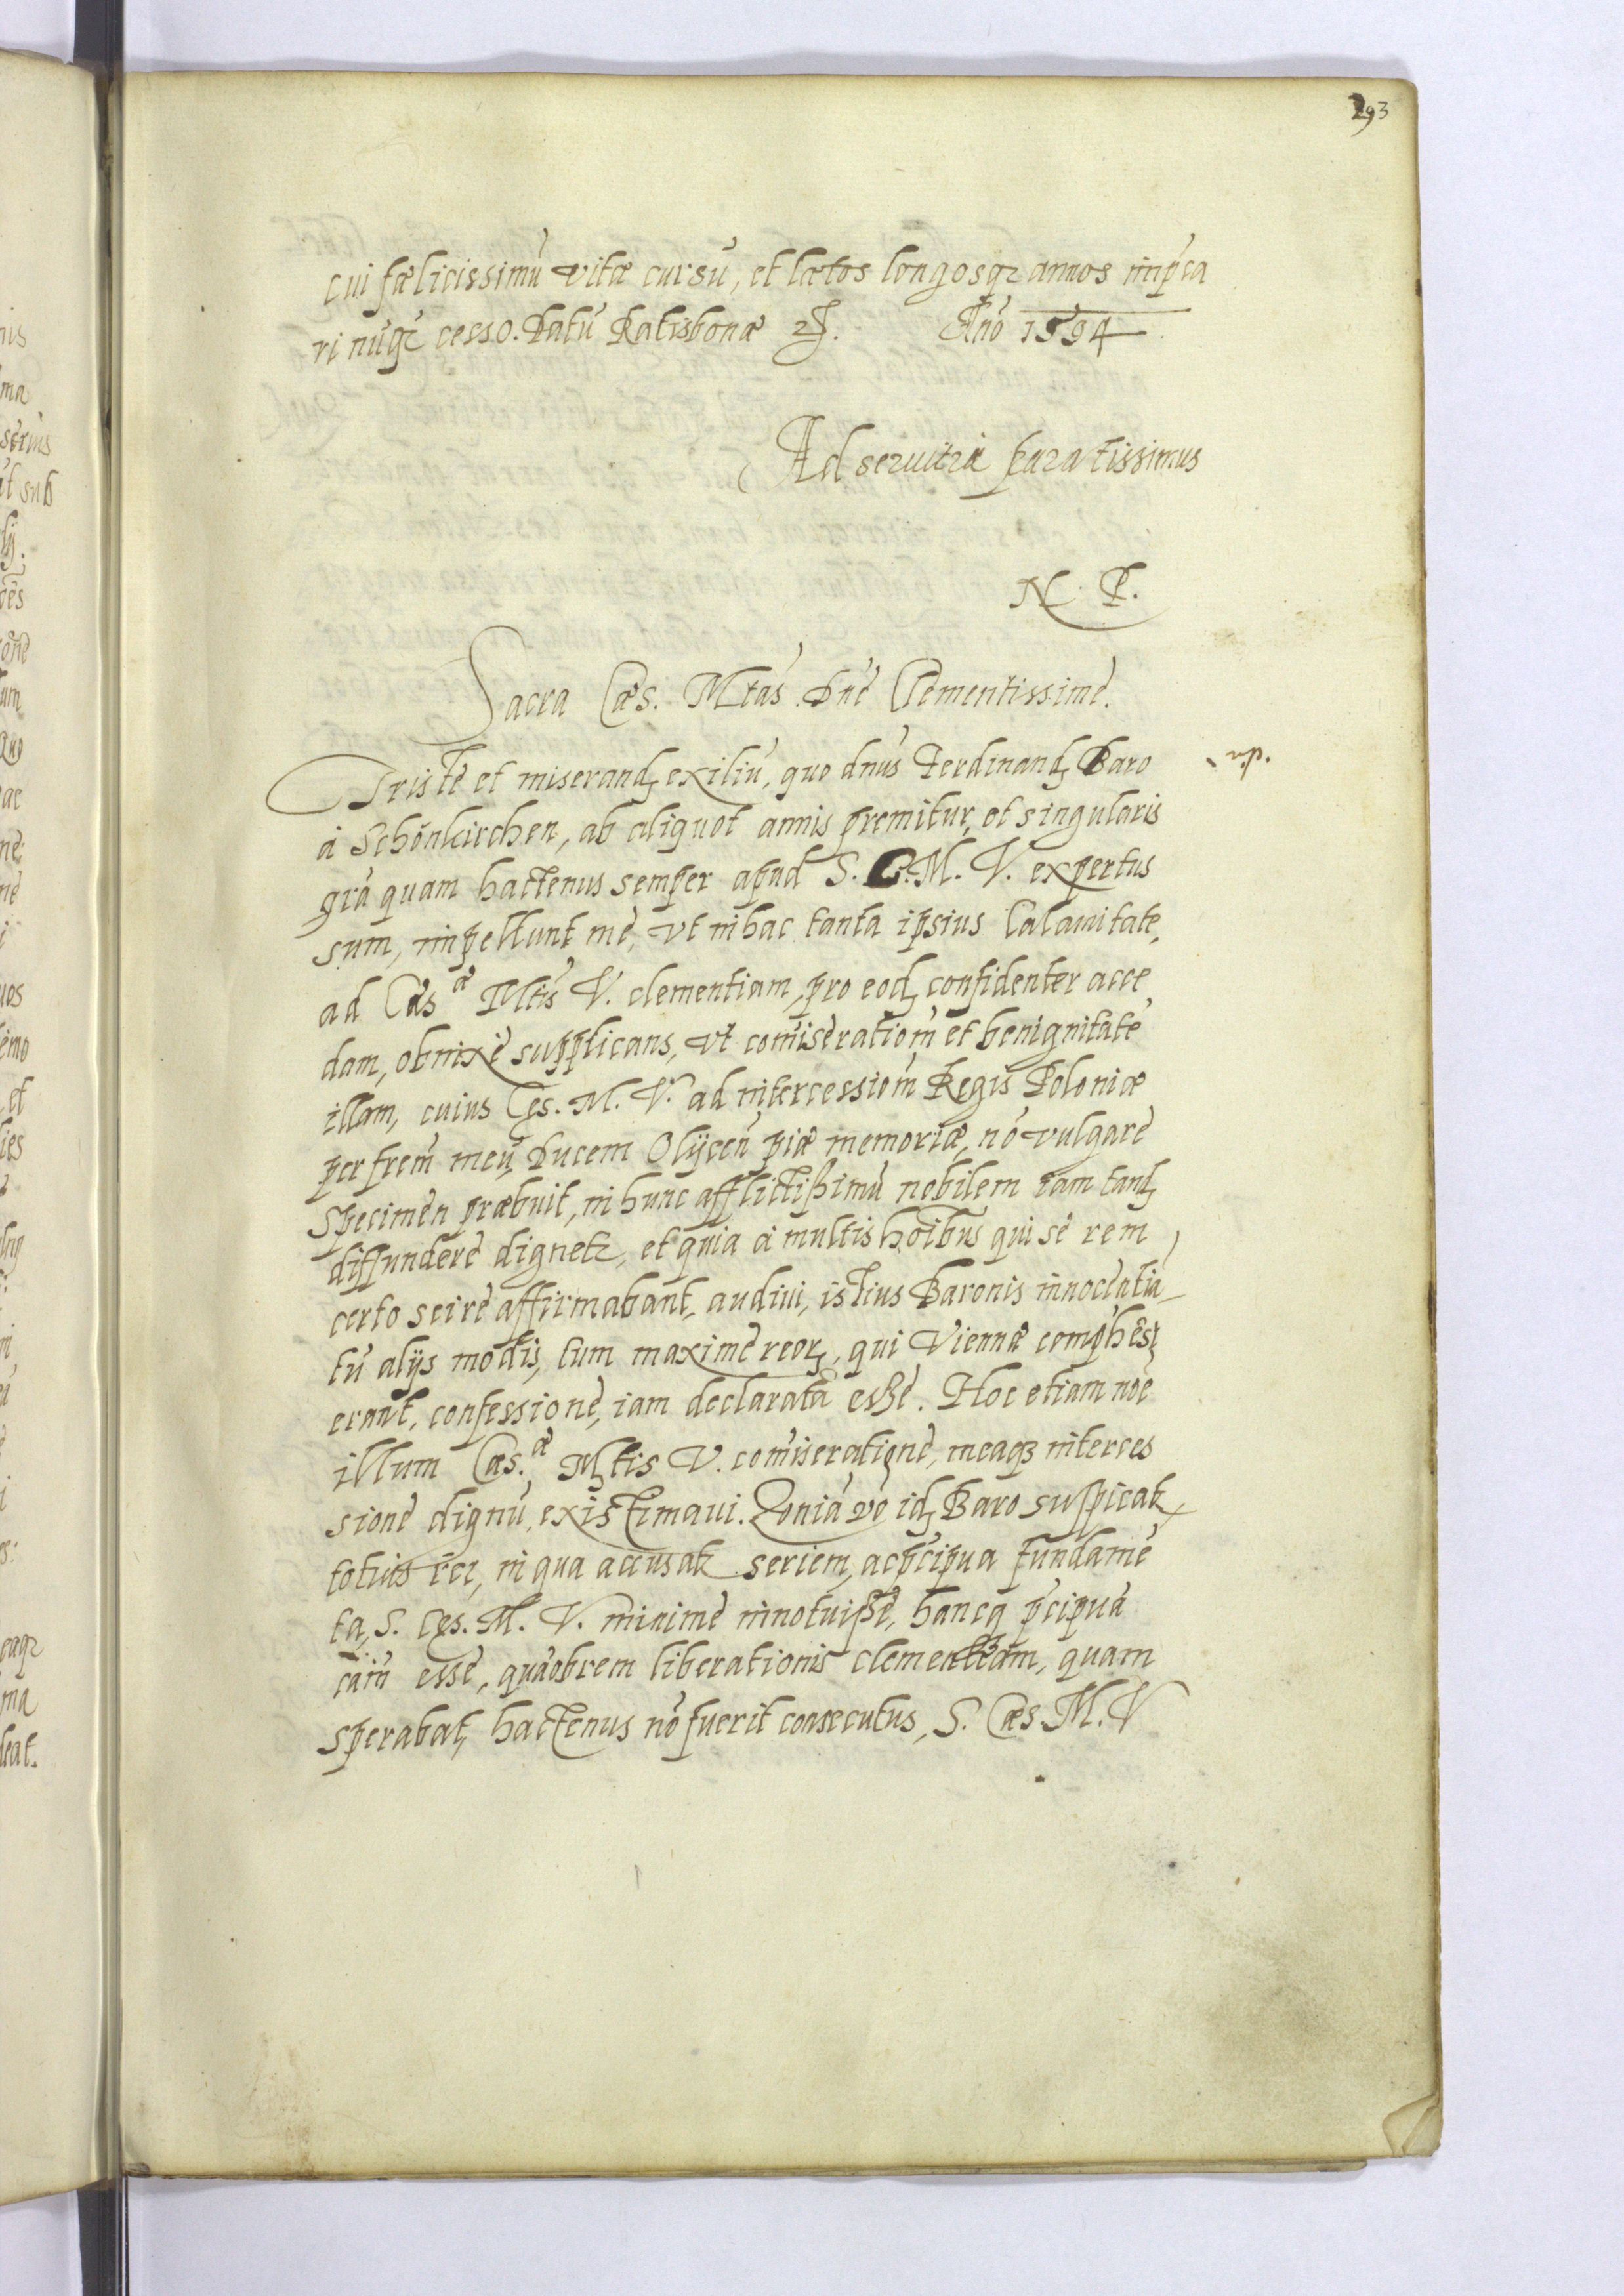 293
cui fælicissimũ vitæ cursũ, et lætos longosqꝫ annos imp̃ca
ri nũqꝫ cesso. Datũ Ratisbonæ ꝛ. Año 1594
Ad seruitia paratissimus
N. P.
Sacra Cæs. Mtas. Dñe Clementissime.
Triste et miserandꝫ exiliũ, quo dñus Ferdinandꝫ Baro
à Schönkirchen, ab aliquot annis premitur, et singularis
grã quam hactenus semper apud S. C. M. V. expertus
sum, impellunt me, vt in hac tanta ipsius Calamitate,
ad Cæsᵃᵉ Mtis V. clementiam, pro eodꝫ confidenter acce
dam, obnixe supplicans, vt comiseratiom̃ et benignitatẽ
illam, cuius Cæs. M. V. ad intercessiom̃ Regis Poloniæ
per frem̃ meũ, Ducem Olÿcen̄ piæ memoriæ, nõ vulgare
specimen præbuit, in hunc afflictißimũ nobilem iam tandꝫ
diffundere dignetꝛ, et quia à multis hoĩbus qui se rem
certo scire affirmabant, audiui, istius Baronis innocẽtiã
tũ alÿs modis, tum maxime reorꝫ, qui Viennæ comp̃hẽsi
erant, confessione, iam declaratã eße. Hoc etiam noẽ
illum Cæs.ᵃᵉ Mtis V. comiseratione, meaqꝫ interces
sione dignũ existimaui. Qoniã võ idꝫ Baro suspicatꝛ
totius rei, in qua accusatꝛ seriem, ac p̃cipua fundamẽ
ta, S. Cæs. M. V. minime innotuiße, hancqꝫ p̃cipuã
cam̃ esse, quãobrem liberationis clementiam, quam
sperabat, hactenus nõ fuerit consecutus, S. Cæs. M. V